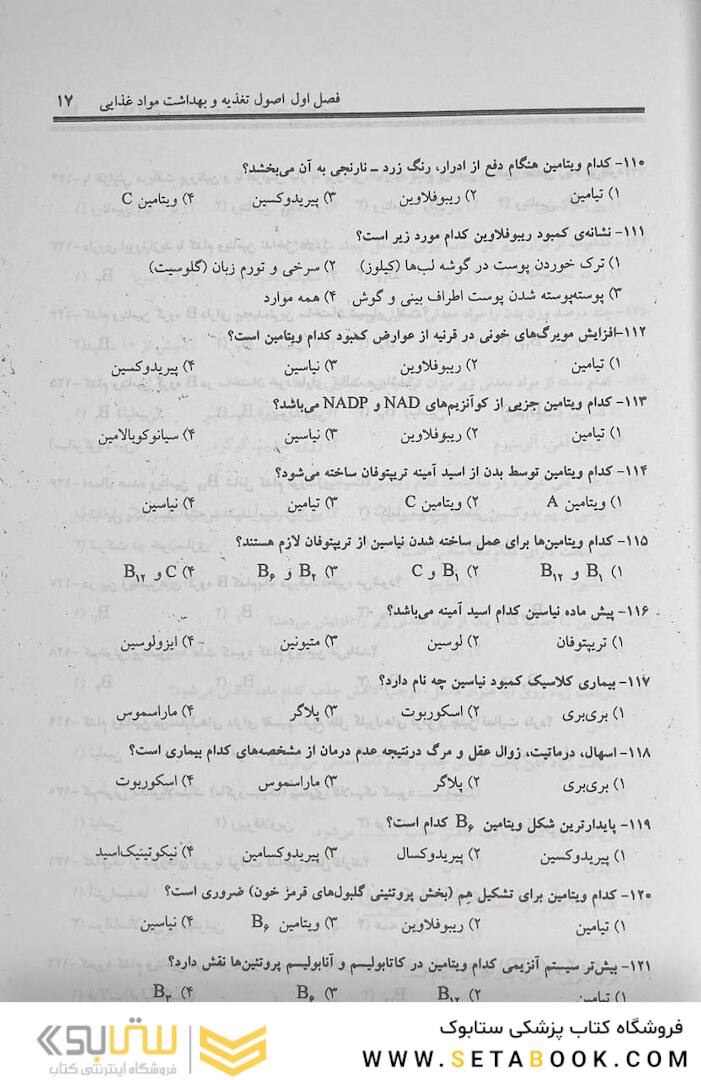 فصل اول اصول تغذیه و بهداشت مواد غذایی ۱۷
۱۱۰- کدام ویتامین هنگام دفع از ادرار، رنگ زرد ـ نارنجی به آن می‌بخشد؟
۱) تیامین ۲) ریبوفلاوین ۳) پیریدوکسین ۴) ویتامین C
۱۱۱- نشانه‌ی کمبود ریبوفلاوین کدام مورد زیر است؟
۱) ترک خوردن پوست در گوشه لب‌ها (کیلوز) ۲) سرخی و تورم زبان (گلوسیت)
۳) پوسته‌پوسته شدن پوست اطراف بینی و گوش ۴) همه موارد
۱۱۲-افزایش مویرگ‌های خونی در قرنیه از عوارض کمبود کدام ویتامین است؟
۱) تیامین ۲) ریبوفلاوین ۳) نیاسین ۴) پیریدوکسین
۱۱۳- کدام ویتامین جزیی از کوآنزیم‌های NAD و NADP می‌باشد؟
۱) تیامین ۲) ریبوفلاوین ۳) نیاسین ۴) سیانوکوبالامین
۱۱۴- کدام ویتامین توسط بدن از اسید آمینه تریپتوفان ساخته می‌شود؟
۱) ویتامین A ۲) ویتامین C ۳) تیامین ۴) نیاسین
۱۱۵- کدام ویتامین‌ها برای عمل ساخته شدن نیاسین از تریپتوفان لازم هستند؟
۱) B۱ و B۱۲ ۲) B۱ و C ۳) B۲ و B۶ ۴) C و B۱۲
۱۱۶- پیش ماده نیاسین کدام اسید آمینه می‌باشد؟
۱) تریپتوفان ۲) لوسین ۳) متیونین ۴) ایزولوسین
۱۱۷- بیماری کلاسیک کمبود نیاسین چه نام دارد؟
۱) بری‌بری ۲) اسکوربوت ۳) پلاگر ۴) ماراسموس
۱۱۸- اسهال، درماتیت، زوال عقل و مرگ درنتیجه عدم درمان از مشخصه‌های کدام بیماری است؟
۱) بری‌بری ۲) پلاگر ۳) ماراسموس ۴) اسکوربوت
۱۱۹- پایدارترین شکل ویتامین B۶ کدام است؟
۱) پیریدوکسین ۲) پیریدوکسال ۳) پیریدوکسامین ۴) نیکوتینیک‌اسید
۱۲۰- کدام ویتامین برای تشکیل هِم (بخش پروتئینی گلبول‌های قرمز خون) ضروری است؟
۱) تیامین ۲) ریبوفلاوین ۳) ویتامین B۶ ۴) نیاسین
۱۲۱- بیش‌تر سیستم آنزیمی کدام ویتامین در کاتابولیسم و آنابولیسم پروتئین‌ها نقش دارد؟
۱) تیامین ۲) B۱۲ ۳) B۶ ۴) B۳
فروشگاه کتاب پزشکی ستابوک
WWW.SETABOOK.COM
ستابوک
فروشگاه اینترنتی کتاب